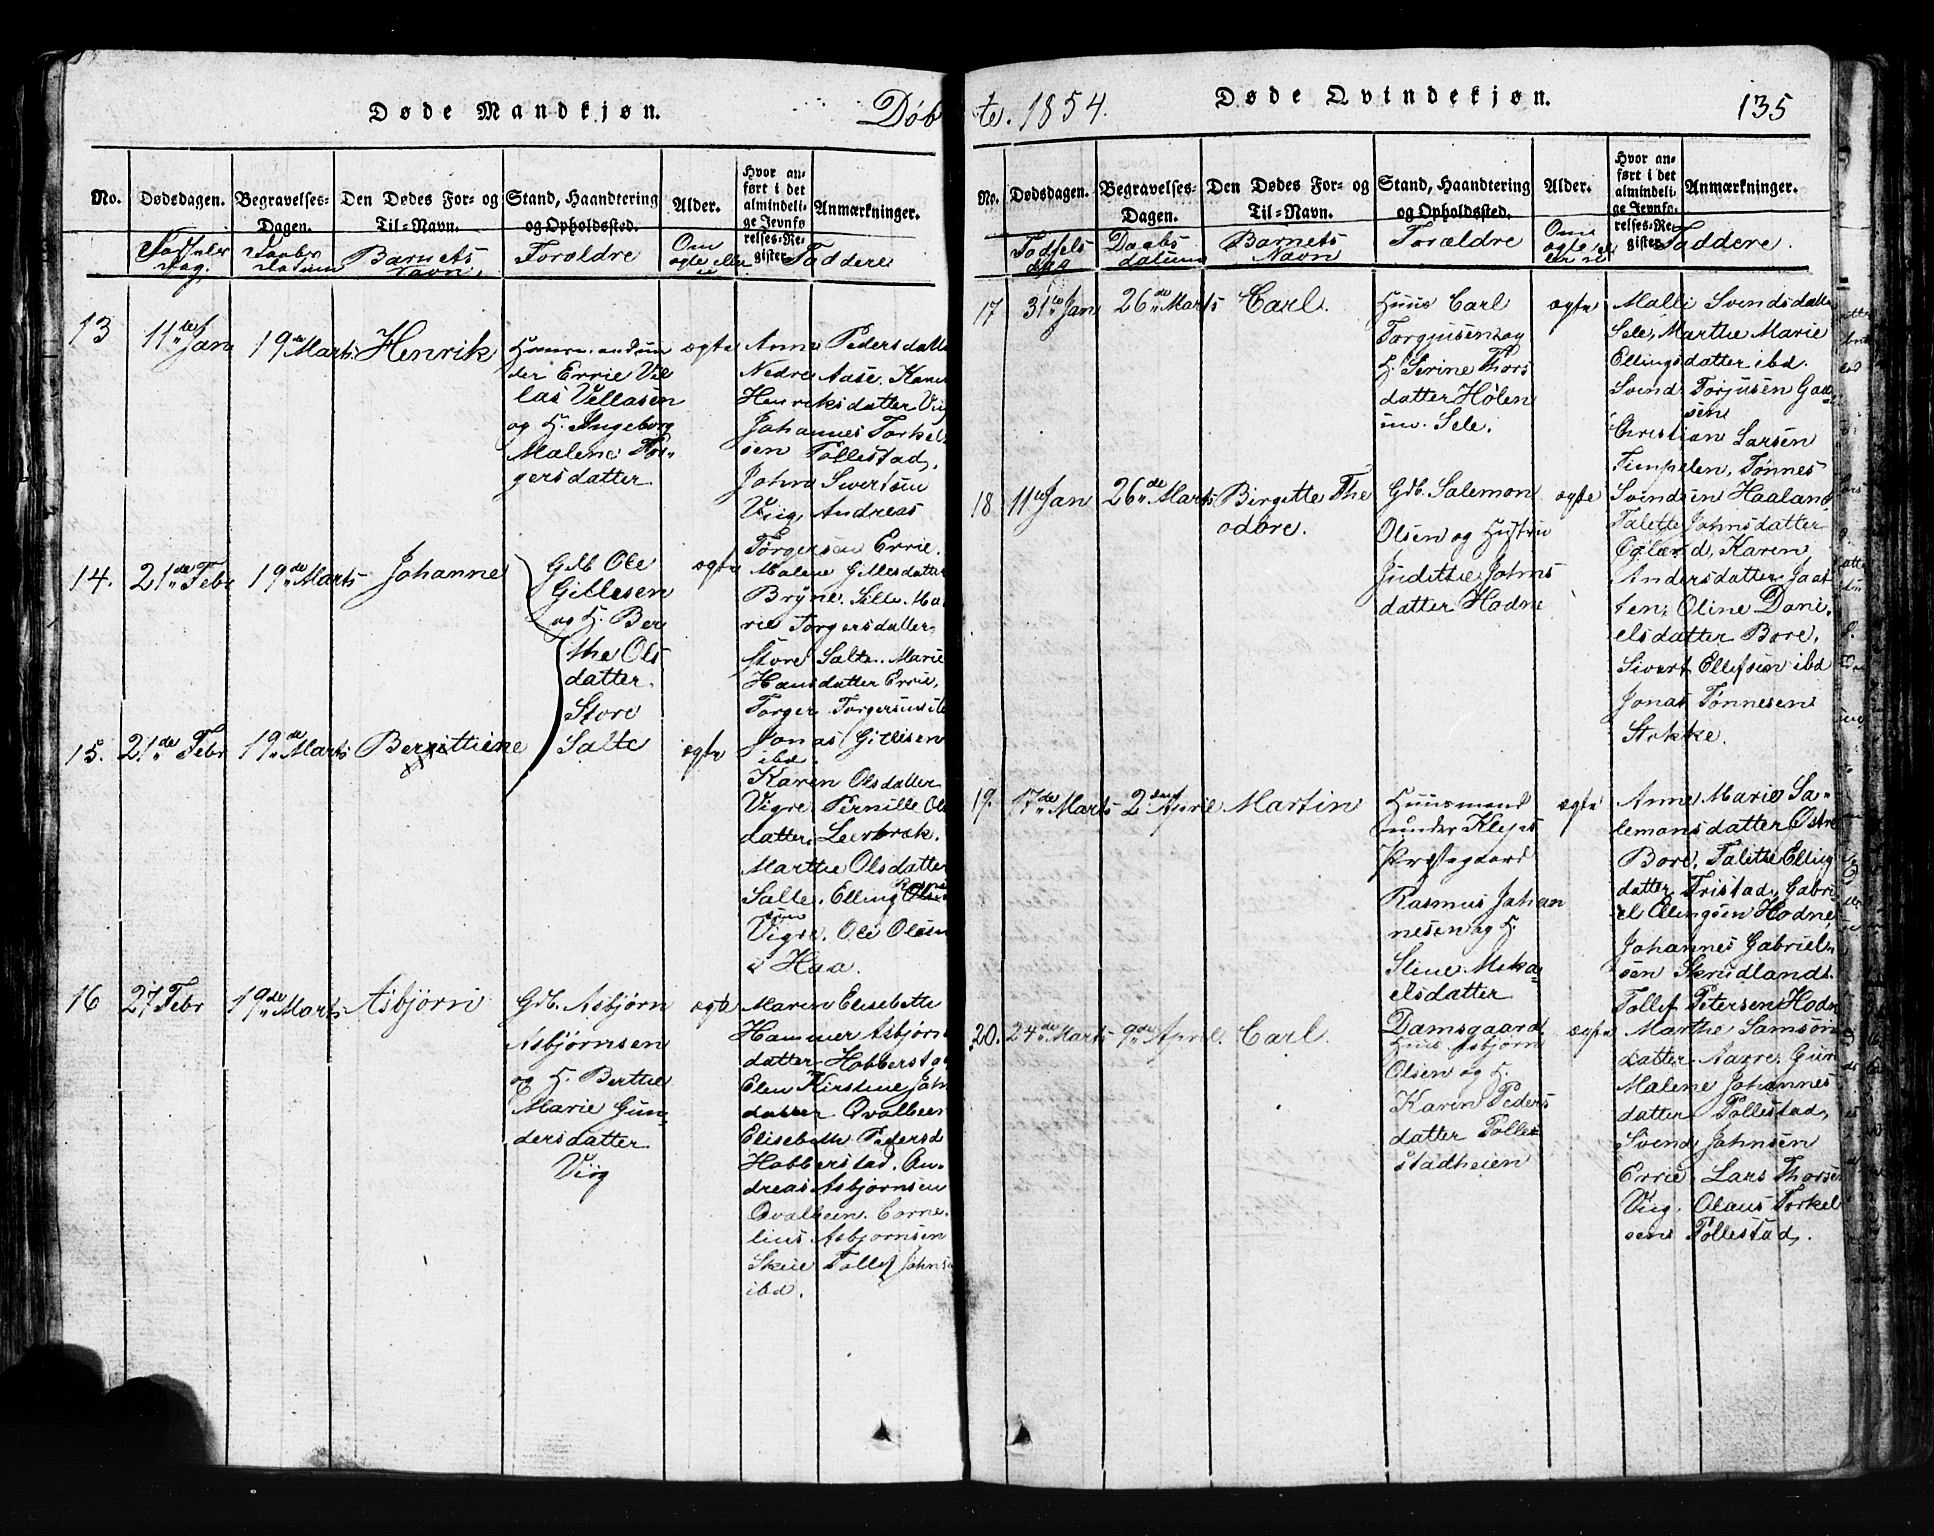 Døde Mandkjøn.
Døbte. 1854.
No.
Dødsdagen.
Begravelses-
Dagen.
Den Dødes For- og
Til-Navn.
Stand, Haandtering
og Opholdssted.
Alder.
Hvor an-
ført i det
almindeli-
ge Jevnfø-
relses-Re-
gister.
Anmærkninger.
Fødsels
dag.
Daabs
datum
Barnets
Navn.
Forældre
Om
ægte eller
ei
Faddere
13
11te Jan
19de Marts
Henrik
og H. Ingeborg
Malene Tor-
gersdatter
ægte
Anne Pedersdatter
Nedre Aase. Karen
Henriksdatter Viig
Johannes Torkel
sen Pollestad,
John Sivertsen
Viig, Andreas
Torgersen Errie.
14.
21de Febr
19de Marts
Johanne
Gdb Ole
Gillesen
og H. Ber
the Ols
datter.
Store
Salte
ægte
Malene Gillesdatter
Bryne. Sille Ma
rie Torgersdatter
Store Salte. Marie
Hansdatter Errie,
Torger Torgersen ibd
Jonas Gillisen
ibd.
15.
21de Febr
19de Marts
Bergittiene
ægte
Karen Olsdatter
Vigre Pernille Ols
datter. Leerbrek.
Marthe Olsdatter
Salte. Elling
Vigre. Ole Olesen
i Haa.
16
27 Febr
19de Marts
Asbjørn
Gdb. Asbjørn
Asbjørnsen
og H. Berthe
Marie Gun
dersdatter
Viig
ægte
Maren Elisebette
Hammer Asbjørns
datter Hobberstad
Elen Kirstine John
datter Qvalbeen
Elisebeth Pedersd
Hobberstad. An-
dreas Asbjørnsen
Qvalbeen. Corne-
lius Asbjørnsen
Skeie Tollef Johns
ibd.
Døde Qvindekjøn.
135
No.
Dødsdagen.
Begravelses-
Dagen.
Den Dødes For- og
Til-Navn.
Stand, Haandtering
og Opholdssted.
Alder.
Hvor an-
ført i det
almindeli-
ge Jevnfø-
relses-Re-
gister.
Anmærkninger.
Fødsels
dag
Daabs
datum
Barnets
Navn
Forældre
Om
ægte el
ler ei
Faddere.
17
31te Jan
26de Marts
Carl.
Huus Carl
Torgjusen og
H. Serine Thors
datter Hølen
u. Sele.
ægte
Malli Svendsdatter
Sele, Marthe Marie
Ellingsdatter ibd.
Svend Torjusen
Christian Larsen
Timpelen, Tønnes
Svendsen Haaland
18
11te Jan
26de Marts
Birgitte The
odore.
Gdb. Salemon
Olsen og Hustru
Judithe Johns
datter Hodne
ægte
Talette Johnsdatter
Oglænd, Karen
Andersdatter Jaat
ten, Oline Dani-
elsdatter Bore,
Sivert Ellefsen ibd
Jonas Tønnesen
Stokke.
19.
17de Marts
2den Aprie
Martin
Huusmand
under Klepps
Præstegaard
Rasmus Johan
nesen og H.
Stine Mika
elsdatter
Damsgaard
ægte
Anne Marie Sa-
lemonsdatter Østre
Bore. Talette Elling
datter Tristad, Gabri
el Ellingsen Hodne,
Johannes Gabriel
sen Skrudland
Tollef Petersen Hodne
20.
24de Marts
9de April.
Carl.
Huus Asbjørn
Olsen og H.
Karen Peders
datter Polle
stadheien
ægte
Marthe Samsøn
datter Aagre, Gun
Malene Johannes
datter Pollestad,
Svend Johnsen
Errie, Lars Thorsen
Viig. Olaus Torkel
sen Pollestad.